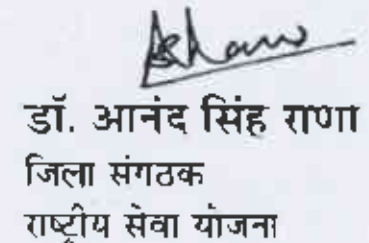 डॉ. आनंद सिंह राणा
जिला संगठक
राष्ट्रीय सेवा योजना